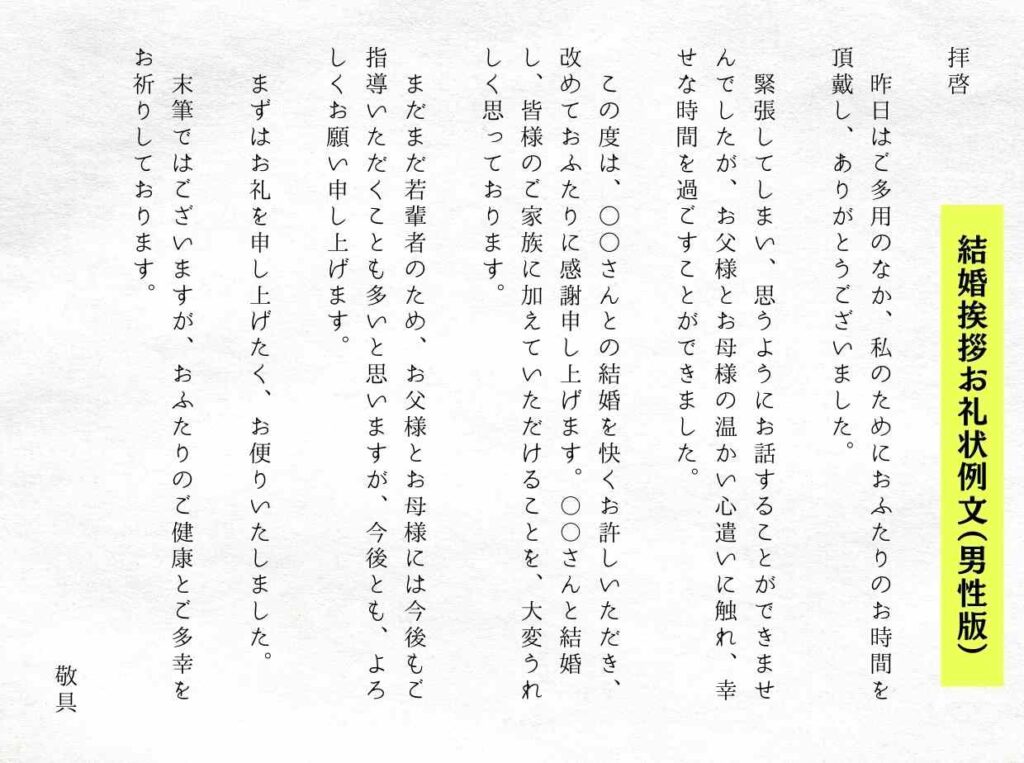 結婚挨拶お礼状例文(男性版)
拝啓
昨日はご多用のなか、私のためにおふたりのお時間を
頂戴し、ありがとうございました。
緊張してしまい、思うようにお話することができませ
んでしたが、お父様とお母様の温かい心遣いに触れ、幸
せな時間を過ごすことができました。
この度は、〇〇さんとの結婚を快くお許しいただき、
改めておふたりに感謝申し上げます。〇〇さんと結婚
し、皆様のご家族に加えていただけることを、大変うれ
しく思っております。
まだまだ若輩者のため、お父様とお母様には今後もご
指導いただくことも多いと思いますが、今後とも、よろ
しくお願い申し上げます。
まずはお礼を申し上げたく、お便りいたしました。
末筆ではございますが、おふたりのご健康とご多幸を
お祈りしております。
敬具